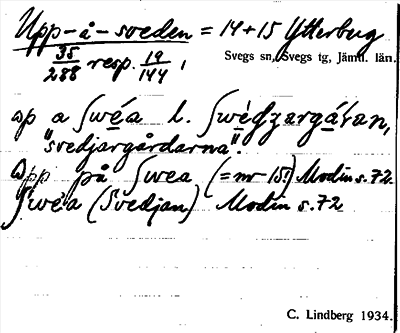 Upp-å-sveden = 14+15 Ytterberg
35/288 resp. 19/144,
Svegs sn, Svegs tg, Jämtl. län.
åp a ʃwéa l. ʃwèdzargáṙan,
"svedjargårdarna".
Upp på ʃwea (= nr 15!) Modin s. 72.
ʃwèa (Svedjan) Modin s. 72
C. Lindberg 1934.